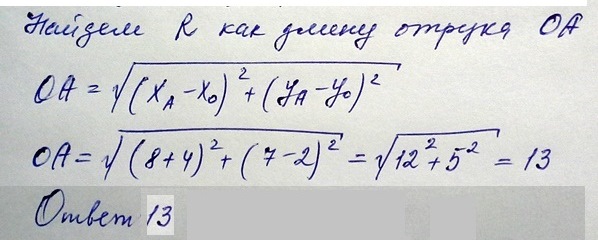 Найдем R как длину отрезка OA
OA = √((x_A - x_0)² + (y_A - y_0)²)
OA = √((8+4)² + (7-2)²) = √(12² + 5²) = 13
Ответ 13